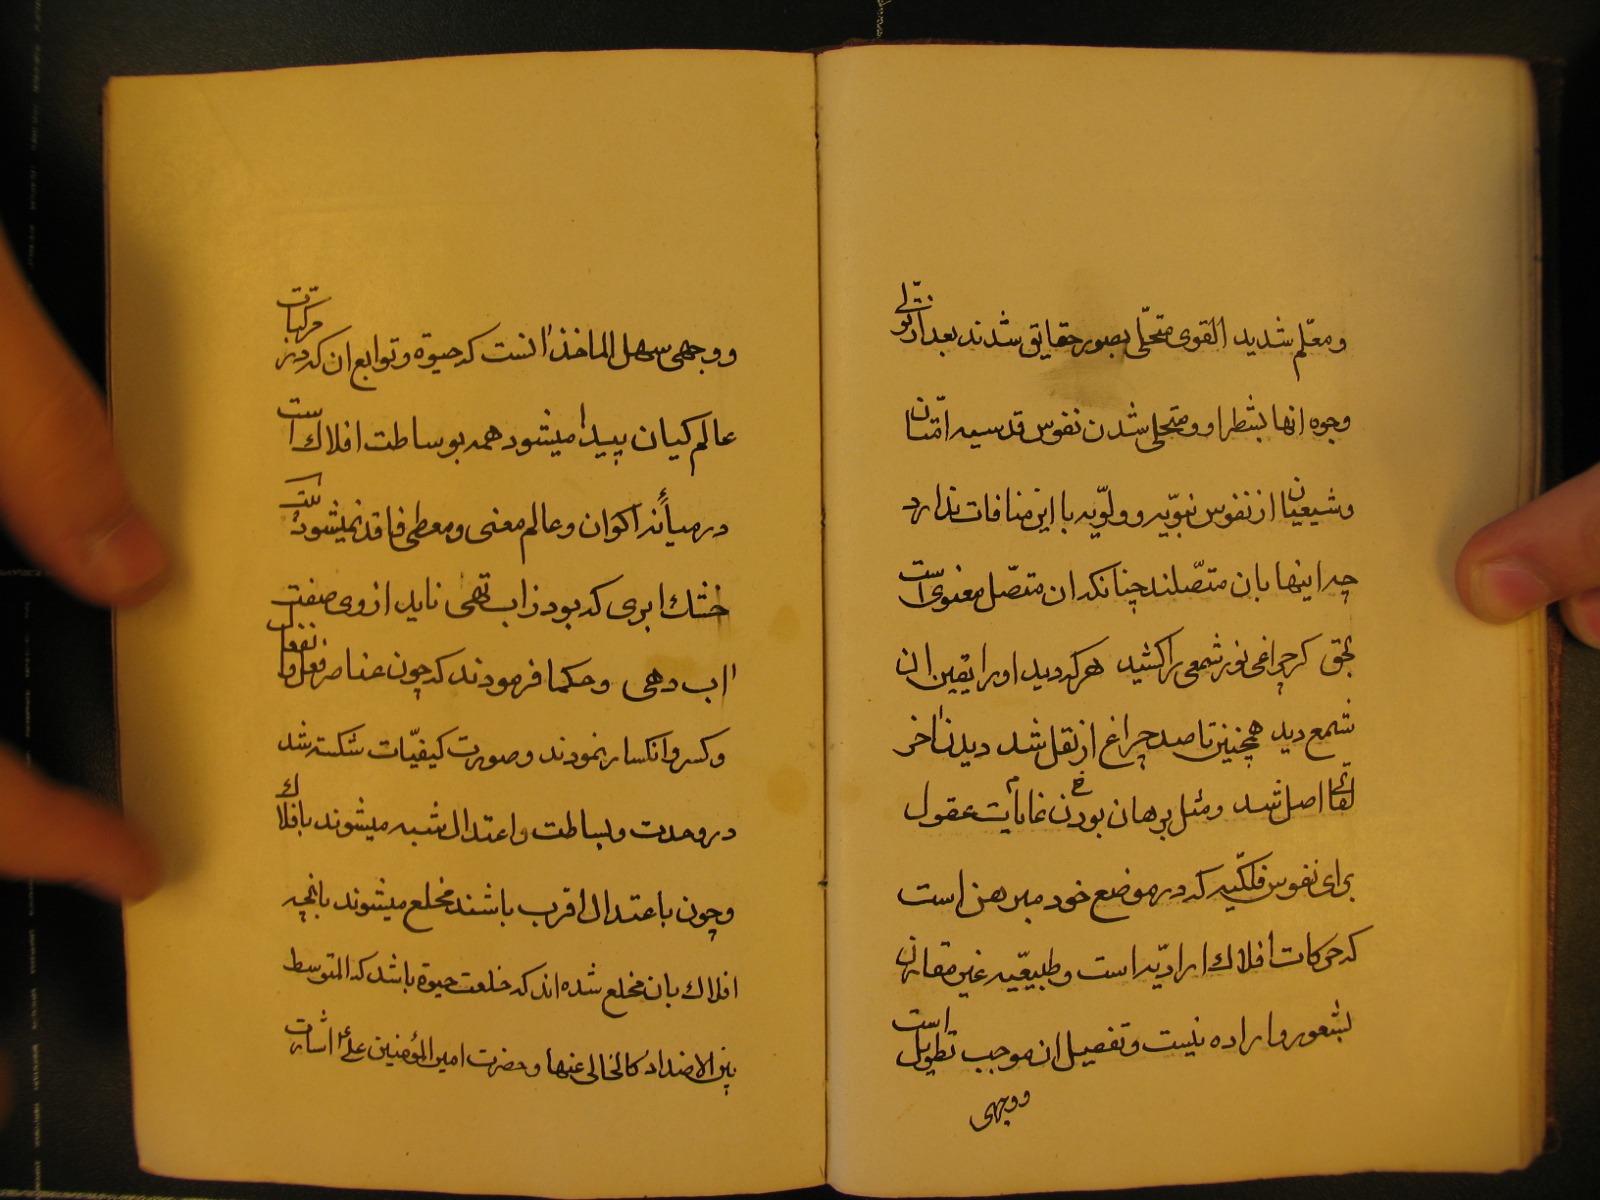 ومعلّم شدید القوی متحلّی بصور حقایق شدند بعد از تولّی
وجوه انها بشطر او و متحلی شدن نفوس قدسیه امّتان
و شیعیان از نفوس نبویّه و ولویّه با این منافات ندارد
چه اینها بان متصّلند چنانکه ان متصّل معنوی است
بحق کر چراغی نور شمعی را کشید هر که دید او را یقین ان
شمع دید همچنین تا صد چراغ از نقل شد دیدن اخر
لقای اصل شد و مثل برهان بودن غایات عقول
برای نفوس فلکیّه که در موضع خود مبرهن است
که حرکات افلاک ارادیّه است و طبیعیّه غیر مقارن
بشعور و اراده نیست و تفصیل ان موجب تطویل است
و وجهی
و وجهی سهل الماخذ انست که حیوة و توابع ان که در مرکبات
عالم کیان پیدا میشود همه بوساطت افلاک است
در میانه اکوان و عالم معنی و معطی فاقد نمیشود
خشک ابری که بود ز اب تهی ناید از وی صفت
اب دهی و حکما فرمودند که چون عناصر فعل و انفعال
و کسر و انکسار نمودند و صورت کیفیّات شکسته شد
در وحدت و بساطت و اعتدال شبیه میشوند بافلاک
و چون باعتدال اقرب باشند مخلع میشوند بانچه
افلاک بان مخلع شده اند که خلعت حیوة باشد که المتوسط
بین الاضداد کالخالی عنها و حضرت امیر المؤمنین علی ع اشارت